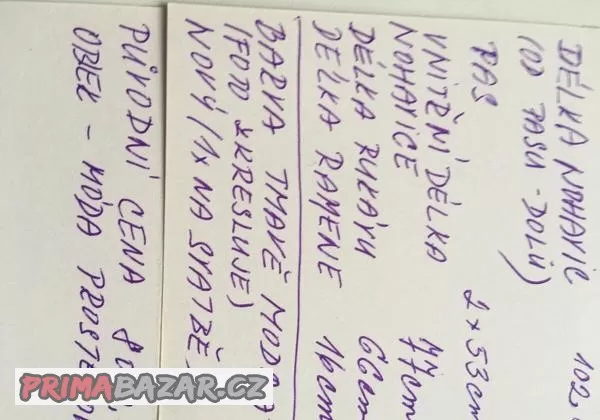 DÉLKA NOHAVIC 102
(OD PASU - DOLŮ)
PAS 2 x 53cm
VNITŘNÍ DÉLKA
NOHAVICE 77cm
DÉLKA RUKÁVU 66cm
DÉLKA RAMENE 16cm
BARVA TMAVĚ MODRÁ
(FOTO ZKRESLUJE)
NOVÝ (1x NA SVATBĚ
PŮVODNÍ CENA
OBEK - MÓDA PROSTĚJ
PRIMABAZAR.CZ